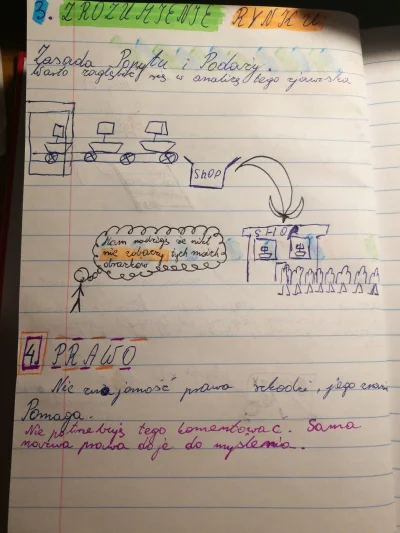 3. ZROZUMIENIE RYNKU
Zasada Popytu i Podaży.
Warto zagłębić się w analizę tego zjawiska
SHOP
SHOP
Mam nadzieję że nikt
nie zobaczy tych moich
obrazków
4. PRAWO
Nie znajomość prawa szkodzi, jego znam
Pomaga.
Nie potrzebuję tego komentować. Sama
nazwa prawa daje do myślenia.